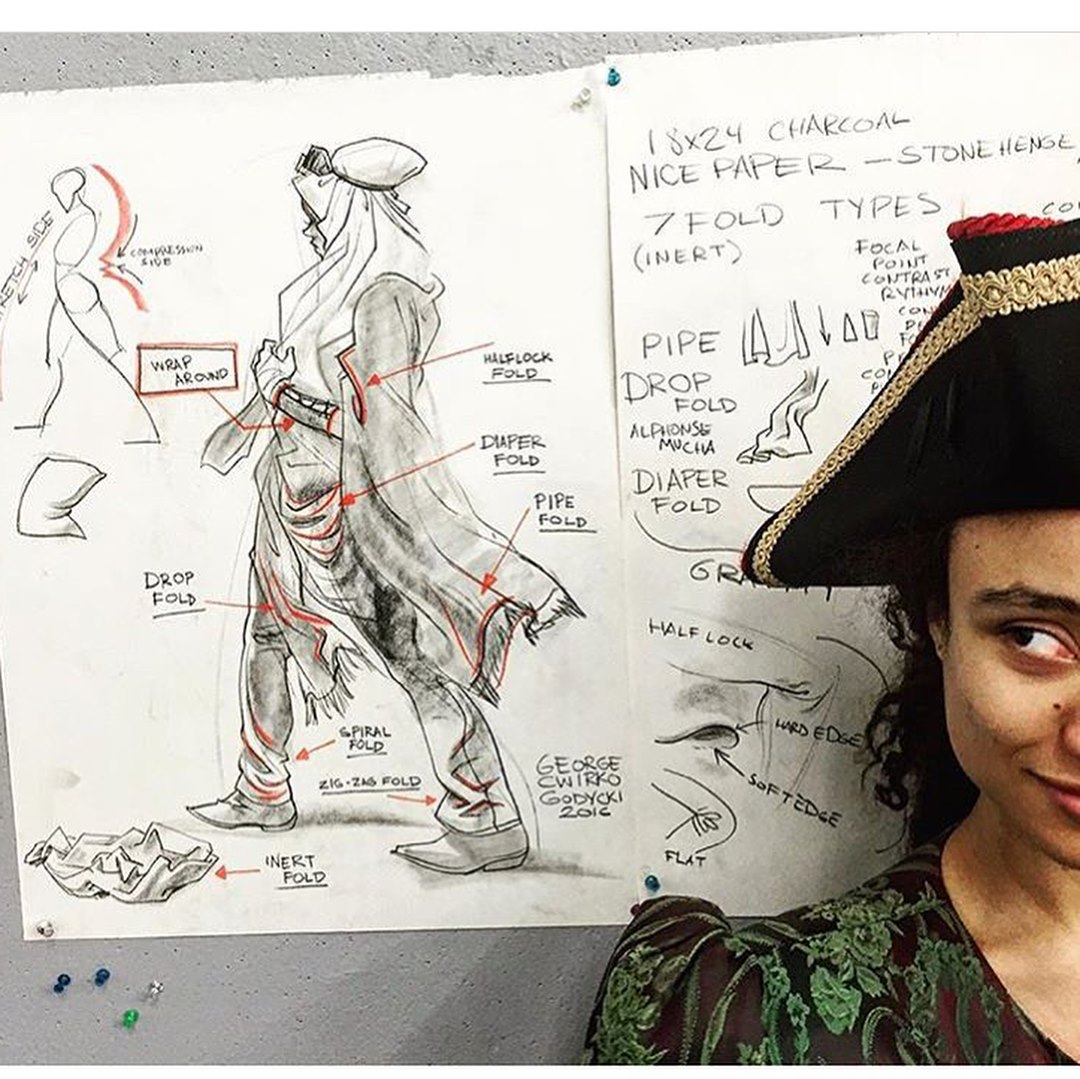 STRETCH SIDE
COMPRESSION
SIDE
WRAP
AROUND
HALFLOCK
FOLD
DIAPER
FOLD
PIPE
FOLD
DROP
FOLD
SPIRAL
FOLD
ZIG-ZAG FOLD
INERT
FOLD
GEORGE
CWIRKO
GODYCKI
2016
18x24 CHARCOAL
NICE PAPER — STONEHENGE
7 FOLD TYPES
(INERT)
FOCAL
POINT
CONTRAST
RYTHYM
PIPE
DROP
FOLD
ALPHONSE
MUCHA
DIAPER
FOLD
HALF LOCK
HARD EDGE
SOFT EDGE
FLAT